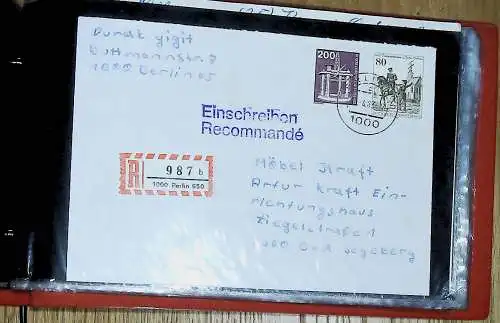 Durak Yigit
Buttmannstr. 7
1000 Berlin 65
200
80
1000
Einschreiben
Recommandé
R
987 b
1000 Berlin 650
Möbel Kraft
Artur Kraft Ein-
richtungshaus
Ziegelstraße 1
360 Bad Segeberg